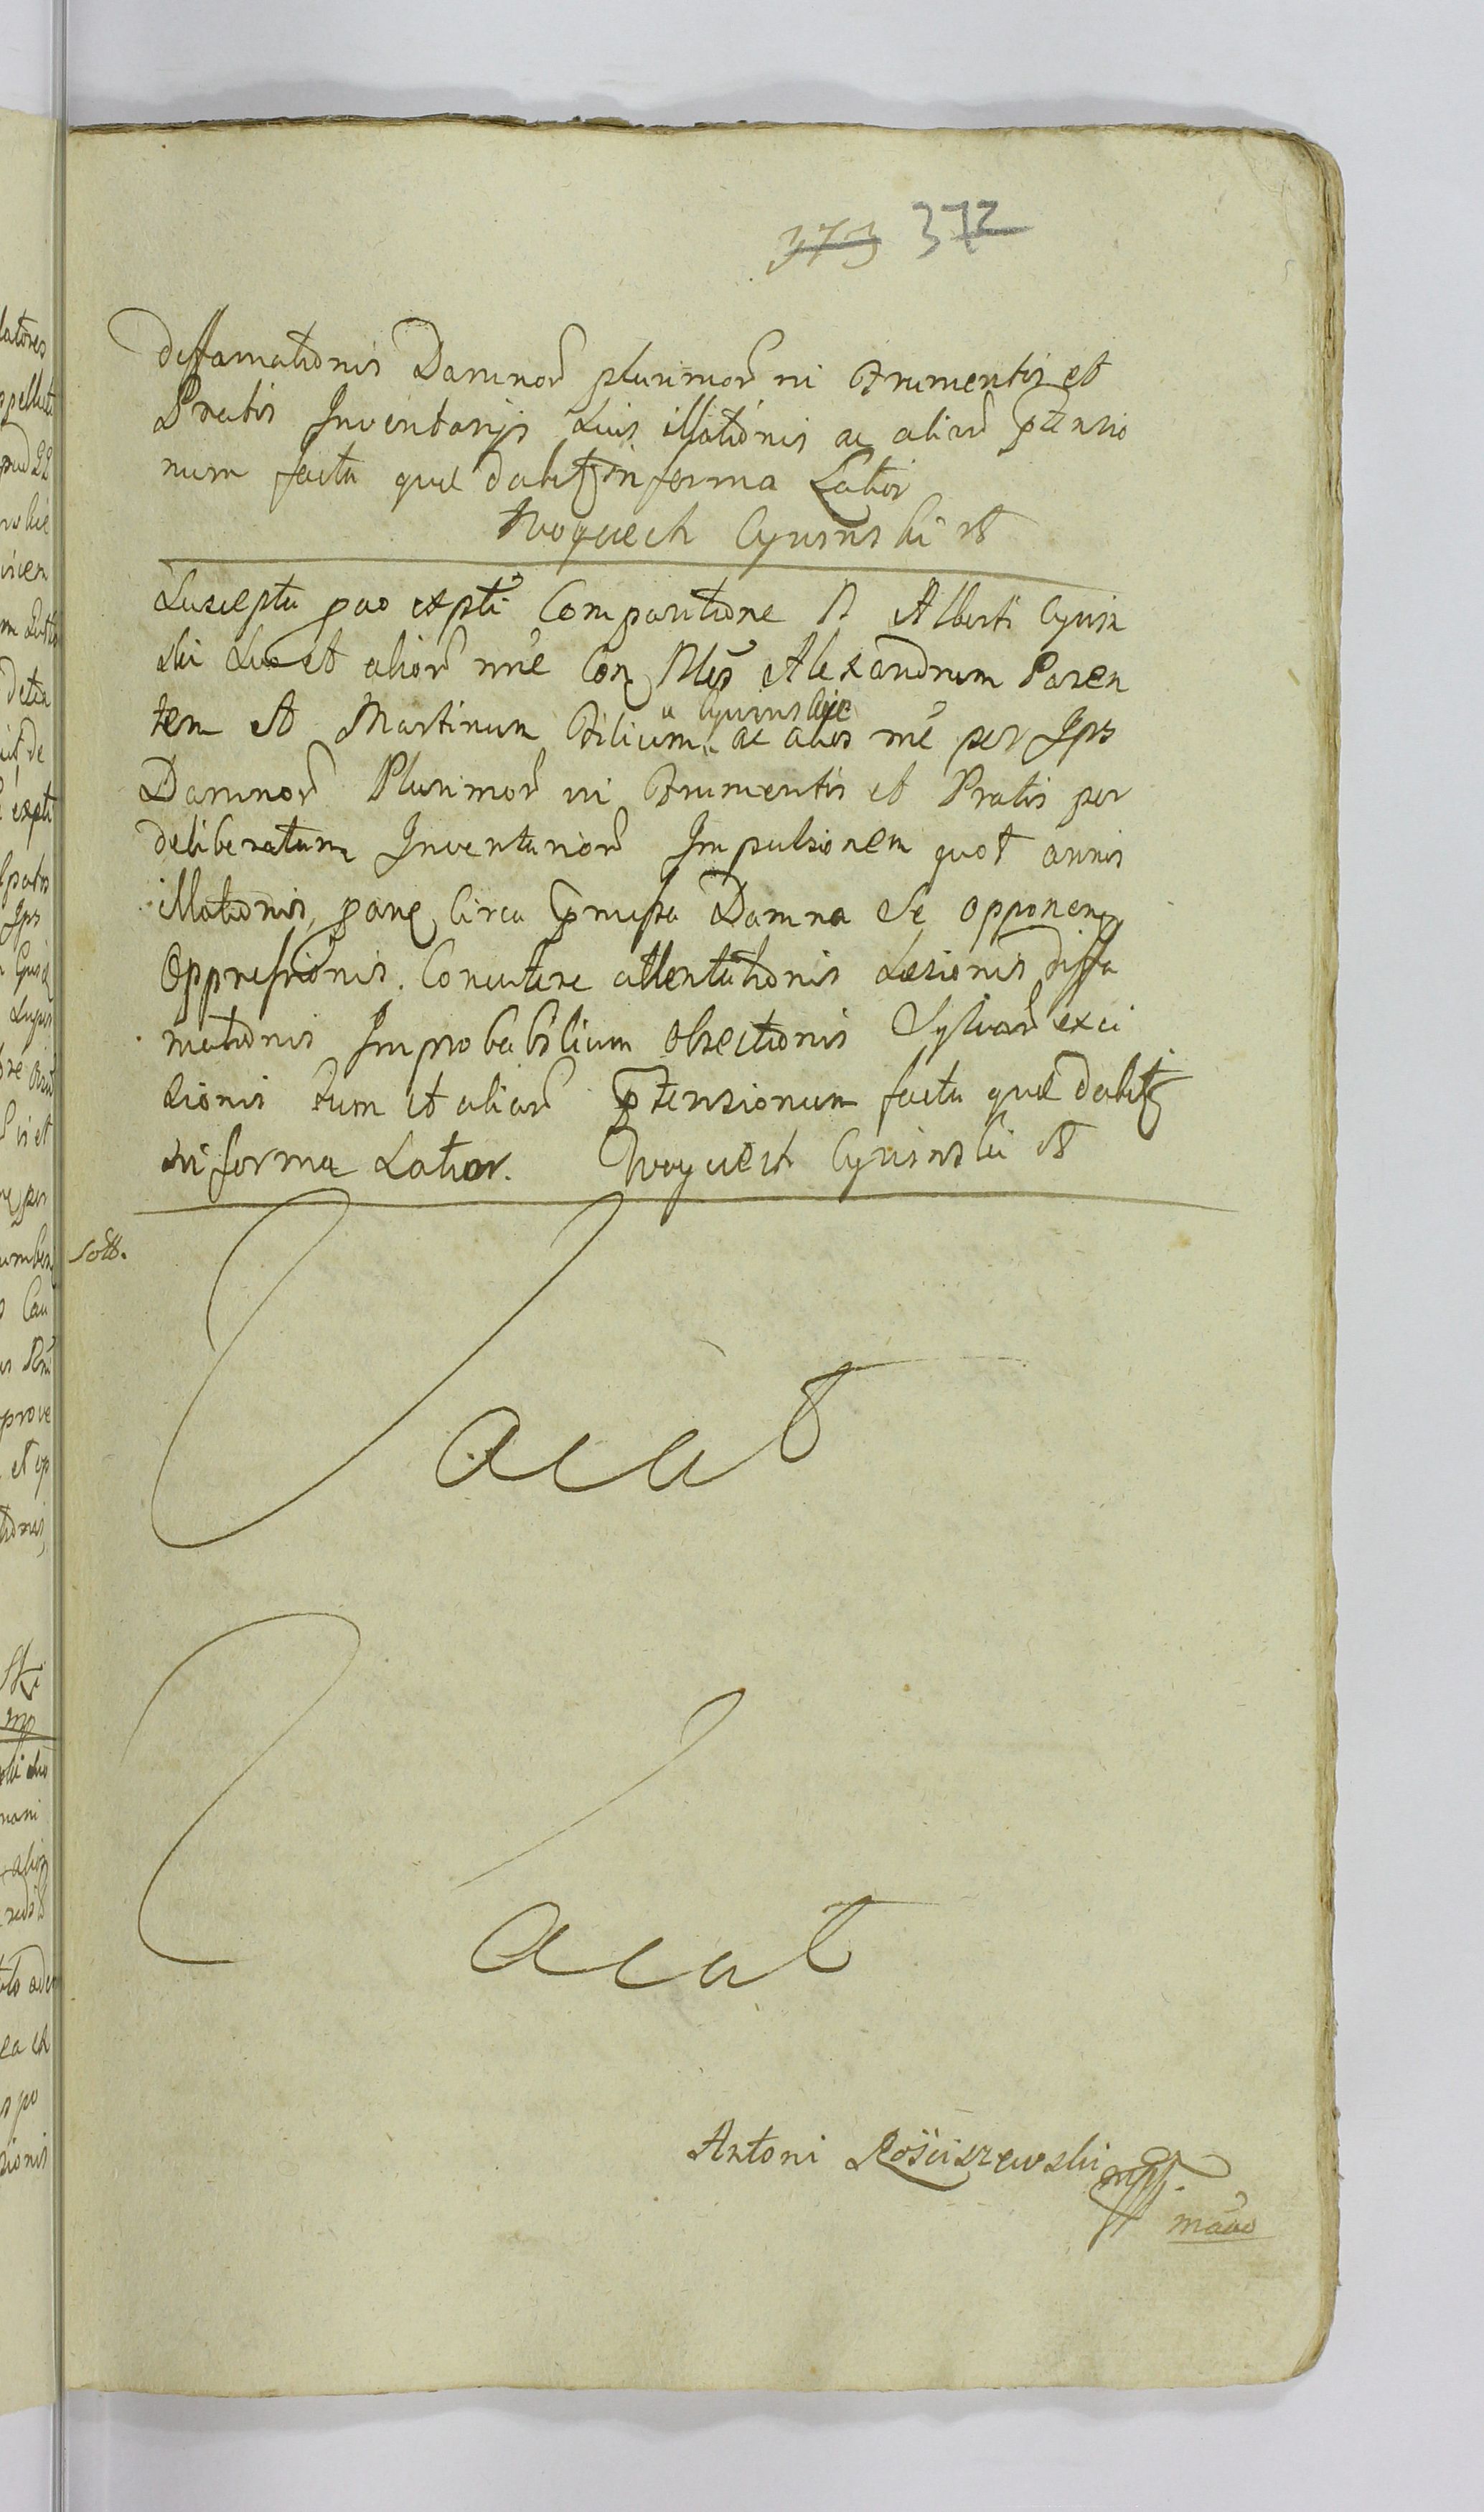 373 372
deffamationis Damnor plurimor in Frumentis et
Pratis Inventarijs suis illationis ac aliar ptensio
num facta quæ dabit in forma Latior
Woyciech Cyvinski
Suscepta pao expti Comparitione N Alberti Cyvin
ski suo et alior nne Con Nles Alexandrum Paren
tem et Martinum Filium Cyvinskije ac alios mē per Ips
Damnor Plurimor in Frumentis et Pratis per
deliberatam Inventarior Impulsionem quot annis
illationis, Circa pmissa Damna Se opponen
Oppressionis. Concutere attentationis Læsionis diffa
mationis Improbabilium objectionis Sylvar exci
sionis tum et aliar ptensionum facta quæ dabit
in forma Latior. Woyciech Cyvinski
Vacat
Vacat
Antoni Rościszewski mp